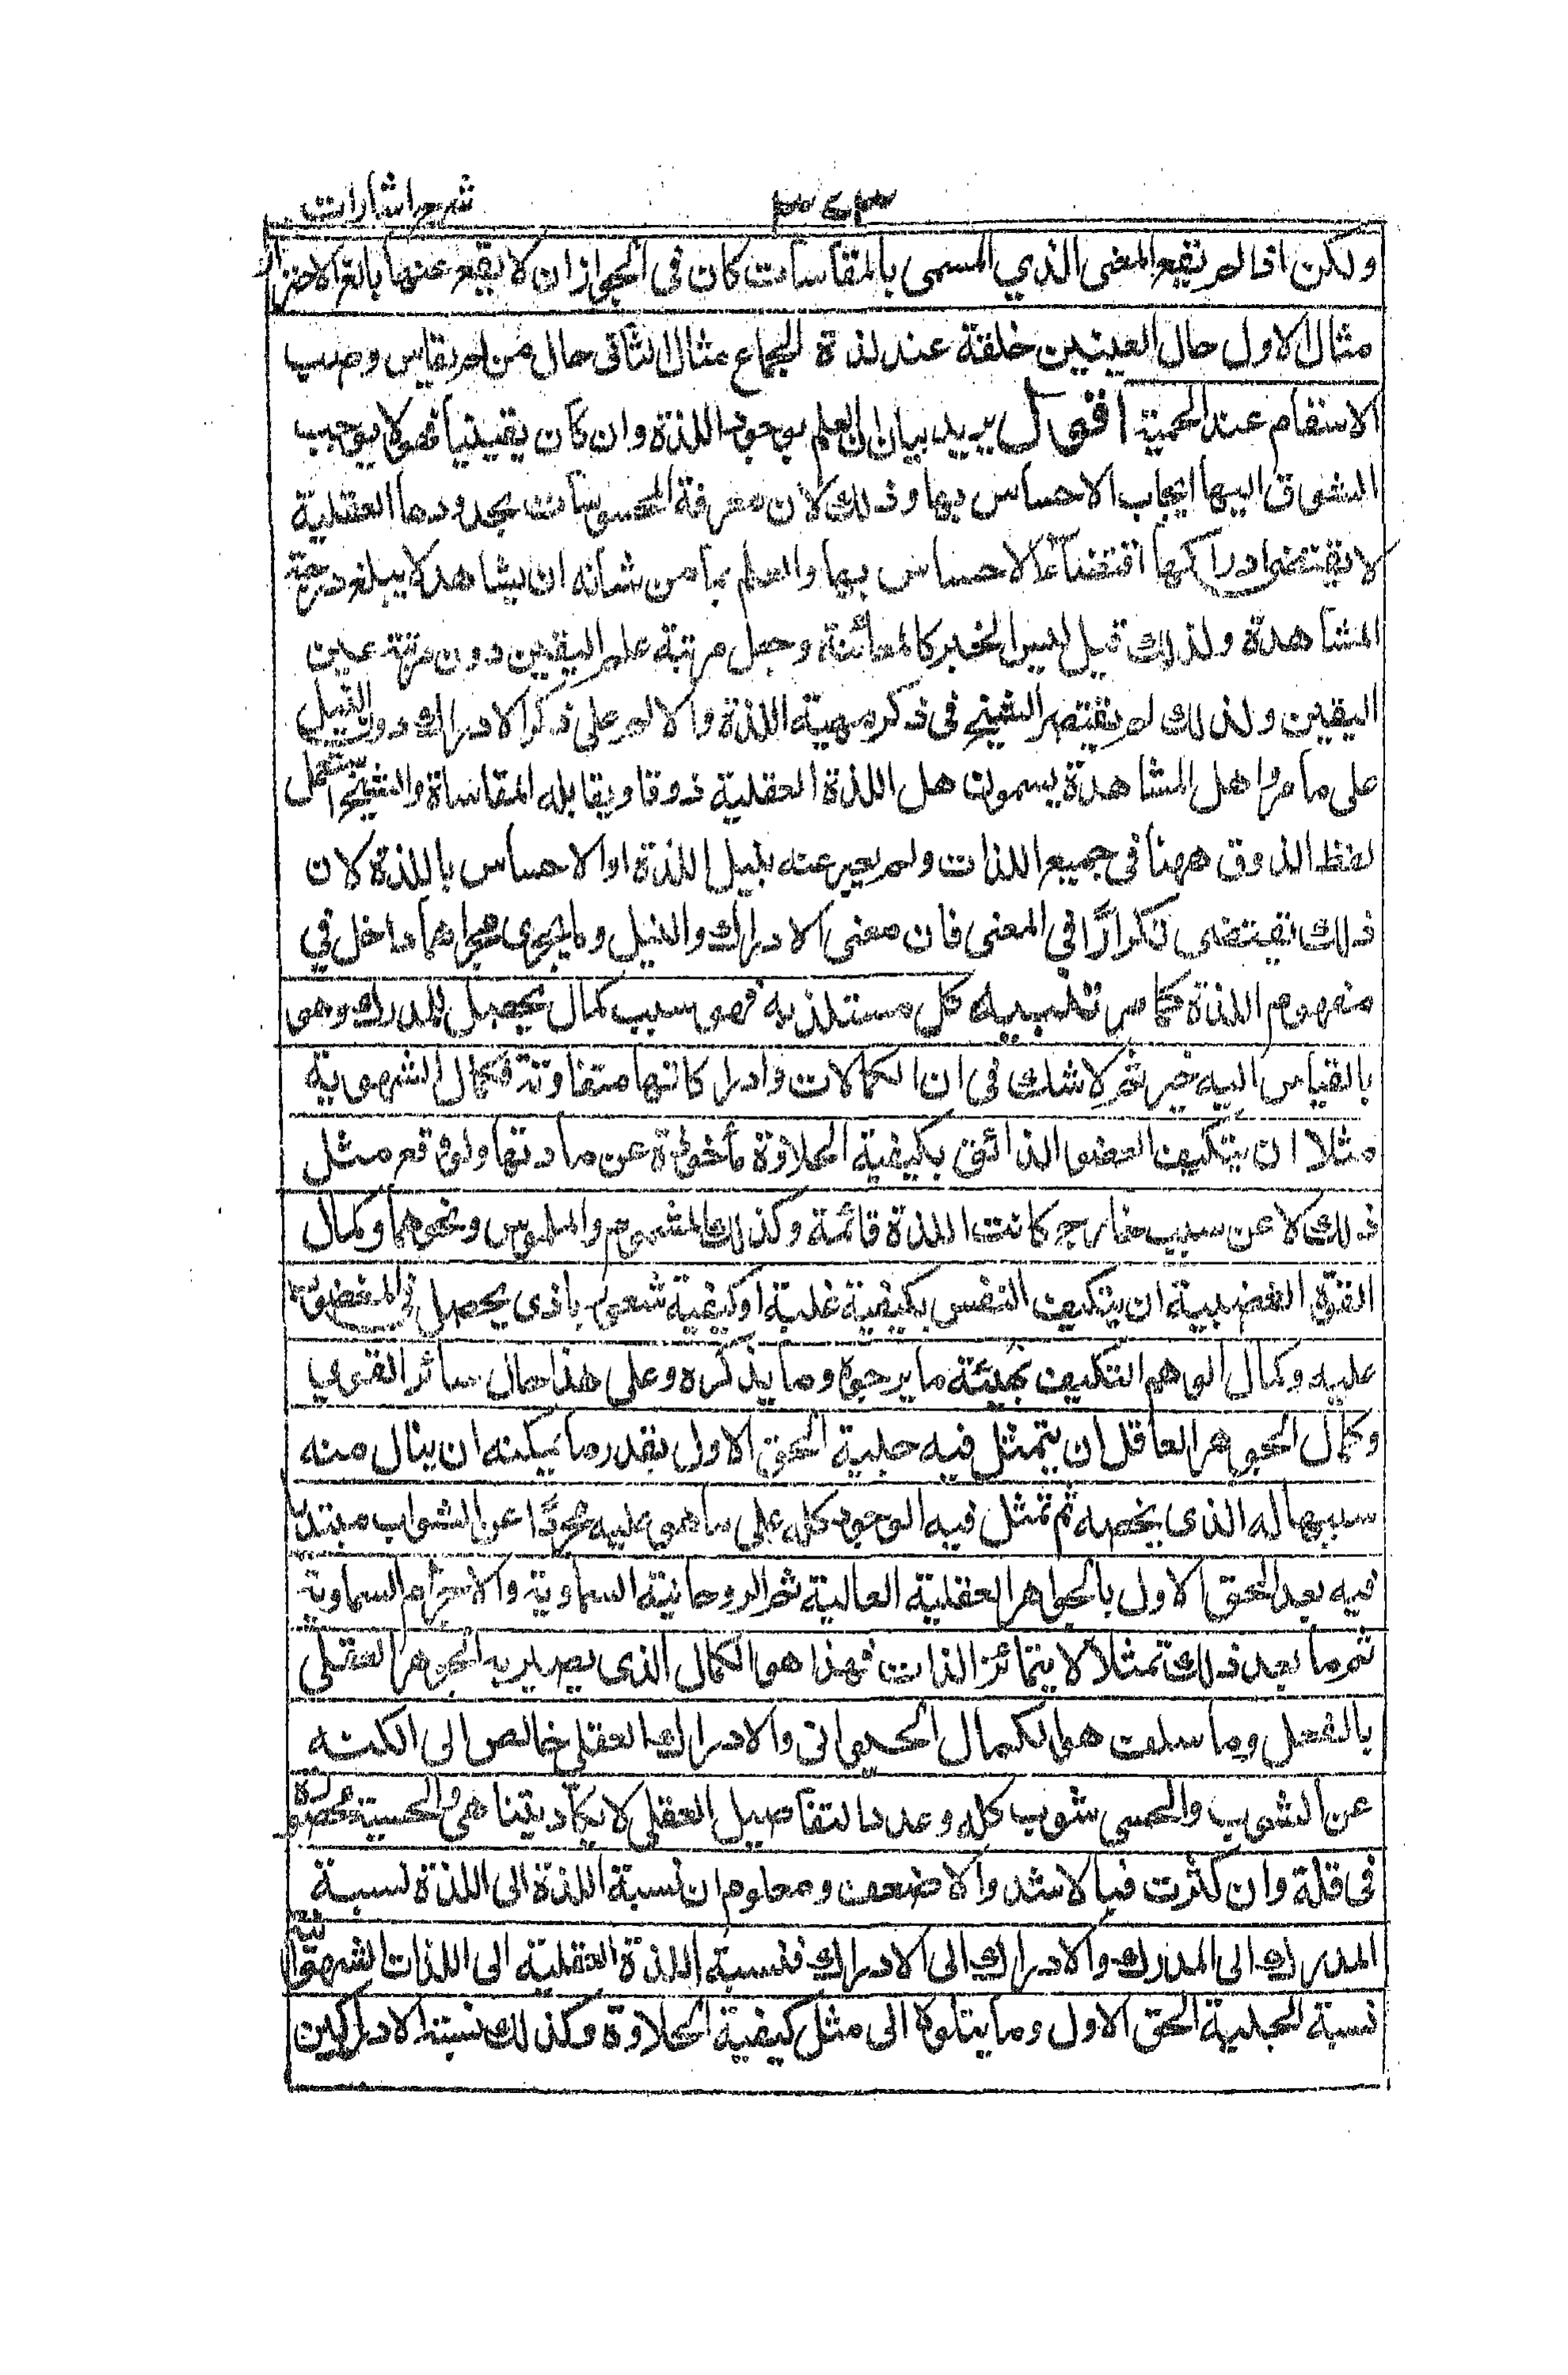 شرح اشارات ٣٤٣
ولكن اذا لم يقع المعنى الذي المسمى بالمقاسات كان في الجواز ان لا يقع عنها بالغ الاحتراز
مثال الاول حال العينين خلقة عند لذة الجماع مثال الثاني حال من لم يقاس وصب
الاسقام عند الحمية اقول يريد بيان ان العلم بوجود اللذة وان كان يقينيا فهو لا يوجب
الشوق اليها ايجاب الاحساس بها وذلك لان معرفة المحسوسات بحدودها العقلية
لا يقتضى ادراكها اقتضاء الاحساس بها والعلم بما من شانه ان يشاهد لا يبلغ درجة
المشاهدة ولذلك قيل ليس الخبر كالمعائنة وجعل مرتبة علم اليقين دون مرتبة عين
اليقين ولذلك لم يقتصر الشيخ في ذكر مهية اللذة والالم على ذكر الادراك دون النيل
على ما مر اهل المشاهدة يسمون هل اللذة العقلية ذوقا ويقابله المقاساة والشيخ استعمل
لفظ الذوق ههنا في جميع اللذات ولم يعبر عنه بنيل اللذة او الاحساس باللذة لان
ذلك يقتضى تكرارًا في المعنى فان معنى الادراك والنيل وما يجرى مجراهما داخل في
مفهوم اللذة كما مر تنبيه كل مستلذ به فهو سبب كمال يحصل للمدرك وهو
بالقياس اليه خير ثم لا شك في ان الكمالات وادراكاتها متفاوتة فكمال الشهوية
مثلا ان يتكيف العضو الذائق بكيفية الحلاوة مأخوذة عن مادتها ولو وقع مثل
ذلك لا عن سبب خارج كانت اللذة قائمة وكذلك المشموم والملموس ونحوهما وكمال
القوة الغضبية ان يتكيف النفس بكيفية غلبة او كيفية شعور باذى يحصل في المغضوب
عليه وكمال الوهم التكيف بهيئة ما يرجوه وما يذكره وعلى هذا حال سائر القوى
وكمال الجوهر العاقل ان يتمثل فيه جلية الحق الاول بقدر ما يمكنه ان ينال منه
ببهاله الذى يخصه ثم تمثل فيه الوجود كله على ما هو عليه مجردًا عن الشواب مبتدأ
فيه بعد الحق الاول بالجواهر العقلية العالية ثم الروحانية السماوية والاجرام السماوية
ثم ما بعد ذلك تمثلا لا يتمائز الذات فهذا هو الكمال الذى يصير به الجوهر العقلى
بالفعل وما سلف هو الكمال الحيوانى والادراك العقلى خالص الى الكنه
عن الشوب والحسى شوب كله وعدد التفاصيل العقلى لا يكاد يتناهى والحسية محصورة
في قلة وان كثرت فبالاشد والاضعف ومعلوم ان نسبة اللذة الى اللذة نسبة
المدرك الى المدرك والادراك الى الادراك فنسبة اللذة العقلية الى اللذات الشهوانية
نسبة الجلية الحق الاول وما يتلوه الى مثل كيفية الحلاوة وكذلك نسبة الادراكين